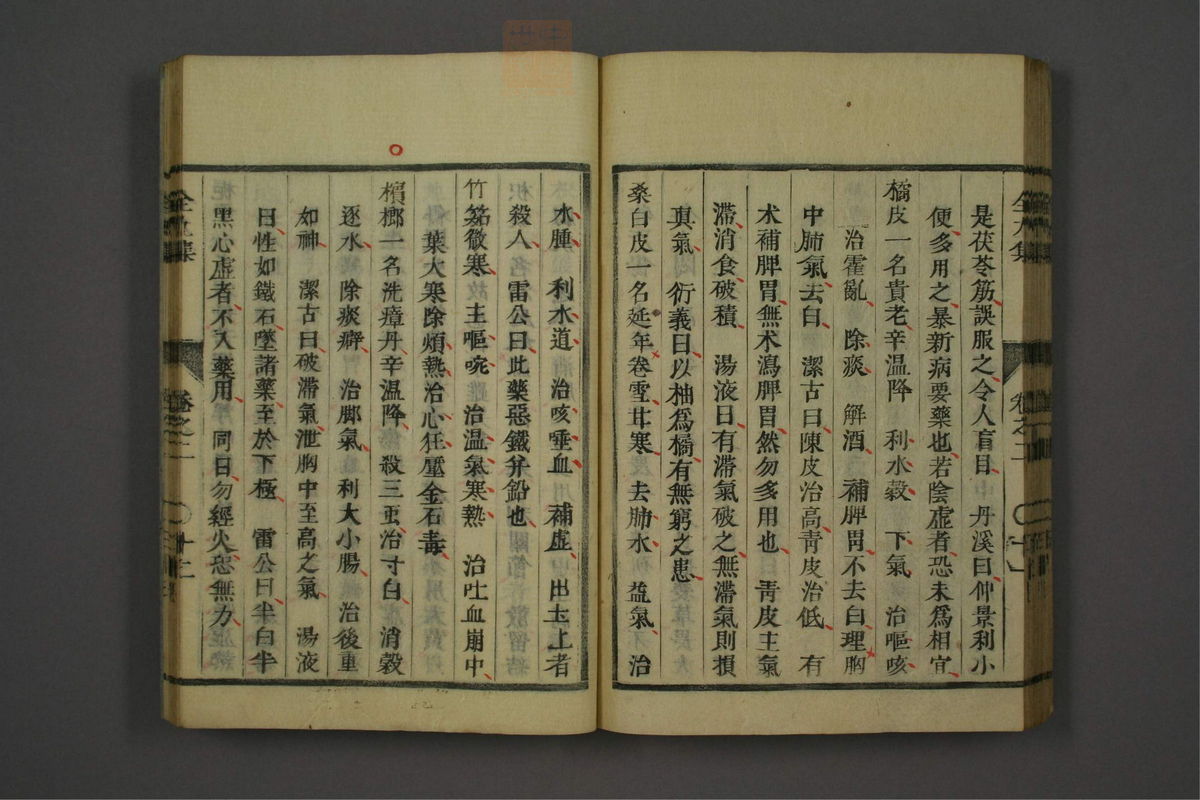 是茯苓筋誤服之令人盲目 丹溪曰仲景利小
便多用之暴新病要藥也若陰虛者恐未爲相宜
橘皮一名貴老辛温降 利水穀 下氣 治嘔咳
治霍亂 除痰 解酒 補脾胃不去白理胸
中肺氣去白 潔古曰陳皮治高靑皮治低 有
术補脾胃無术瀉脾胃然勿多用也 靑皮主氣
滯消食破積 湯液曰有滯氣破之無滯氣則損
眞氣 衍義曰以柚爲橘有無窮之患
桑白皮一名延年卷雪甘寒 去肺水 益氣 治
水腫 利水道 治咳唾血 補虛 出土上者
殺人 雷公曰此藥惡鐵并鉛也
竹筎微寒 主嘔啘 治温氣寒熱 治吐血崩中
葉大寒除煩熱治心狂壓金石毒
檳榔一名洗瘴丹辛温降 殺三䖝治寸白 消穀
逐水 除痰癖 治脚氣 利大小腸 治後重
如神 潔古曰破滯氣泄胸中至高之氣 湯液
曰性如鐵石墜諸藥至於下極 雷公曰半白半
黑心虛者不入藥用 同曰勿經火恐無力
卷之二